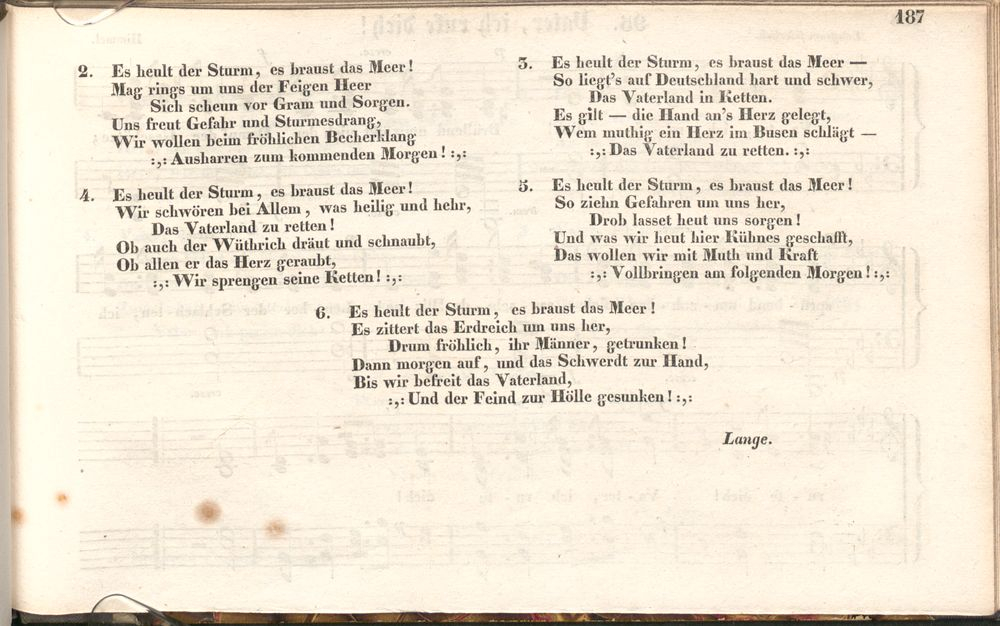 187
2. Es heult der Sturm, es braust das Meer!
Mag rings um uns der Feigen Heer
Sich scheun vor Gram und Sorgen.
Uns freut Gefahr und Sturmesdrang,
Wir wollen beim fröhlichen Becherklang
:,: Ausharren zum kommenden Morgen! :,:
3. Es heult der Sturm, es braust das Meer —
So liegt's auf Deutschland hart und schwer,
Das Vaterland in Ketten.
Es gilt — die Hand an's Herz gelegt,
Wem muthig ein Herz im Busen schlägt —
:,: Das Vaterland zu retten. :,:
4. Es heult der Sturm, es braust das Meer!
Wir schwören bei Allem, was heilig und hehr,
Das Vaterland zu retten!
Ob auch der Wüthrich dräut und schnaubt,
Ob allen er das Herz geraubt,
:,: Wir sprengen seine Ketten! :,:
5. Es heult der Sturm, es braust das Meer!
So ziehn Gefahren um uns her,
Drob lasset heut uns sorgen!
Und was wir heut hier Kühnes geschafft,
Das wollen wir mit Muth und Kraft
:,: Vollbringen am folgenden Morgen! :,:
6. Es heult der Sturm, es braust das Meer!
Es zittert das Erdreich um uns her,
Drum fröhlich, ihr Männer, getrunken!
Dann morgen auf, und das Schwerdt zur Hand,
Bis wir befreit das Vaterland,
:,: Und der Feind zur Hölle gesunken! :,:
Lange.